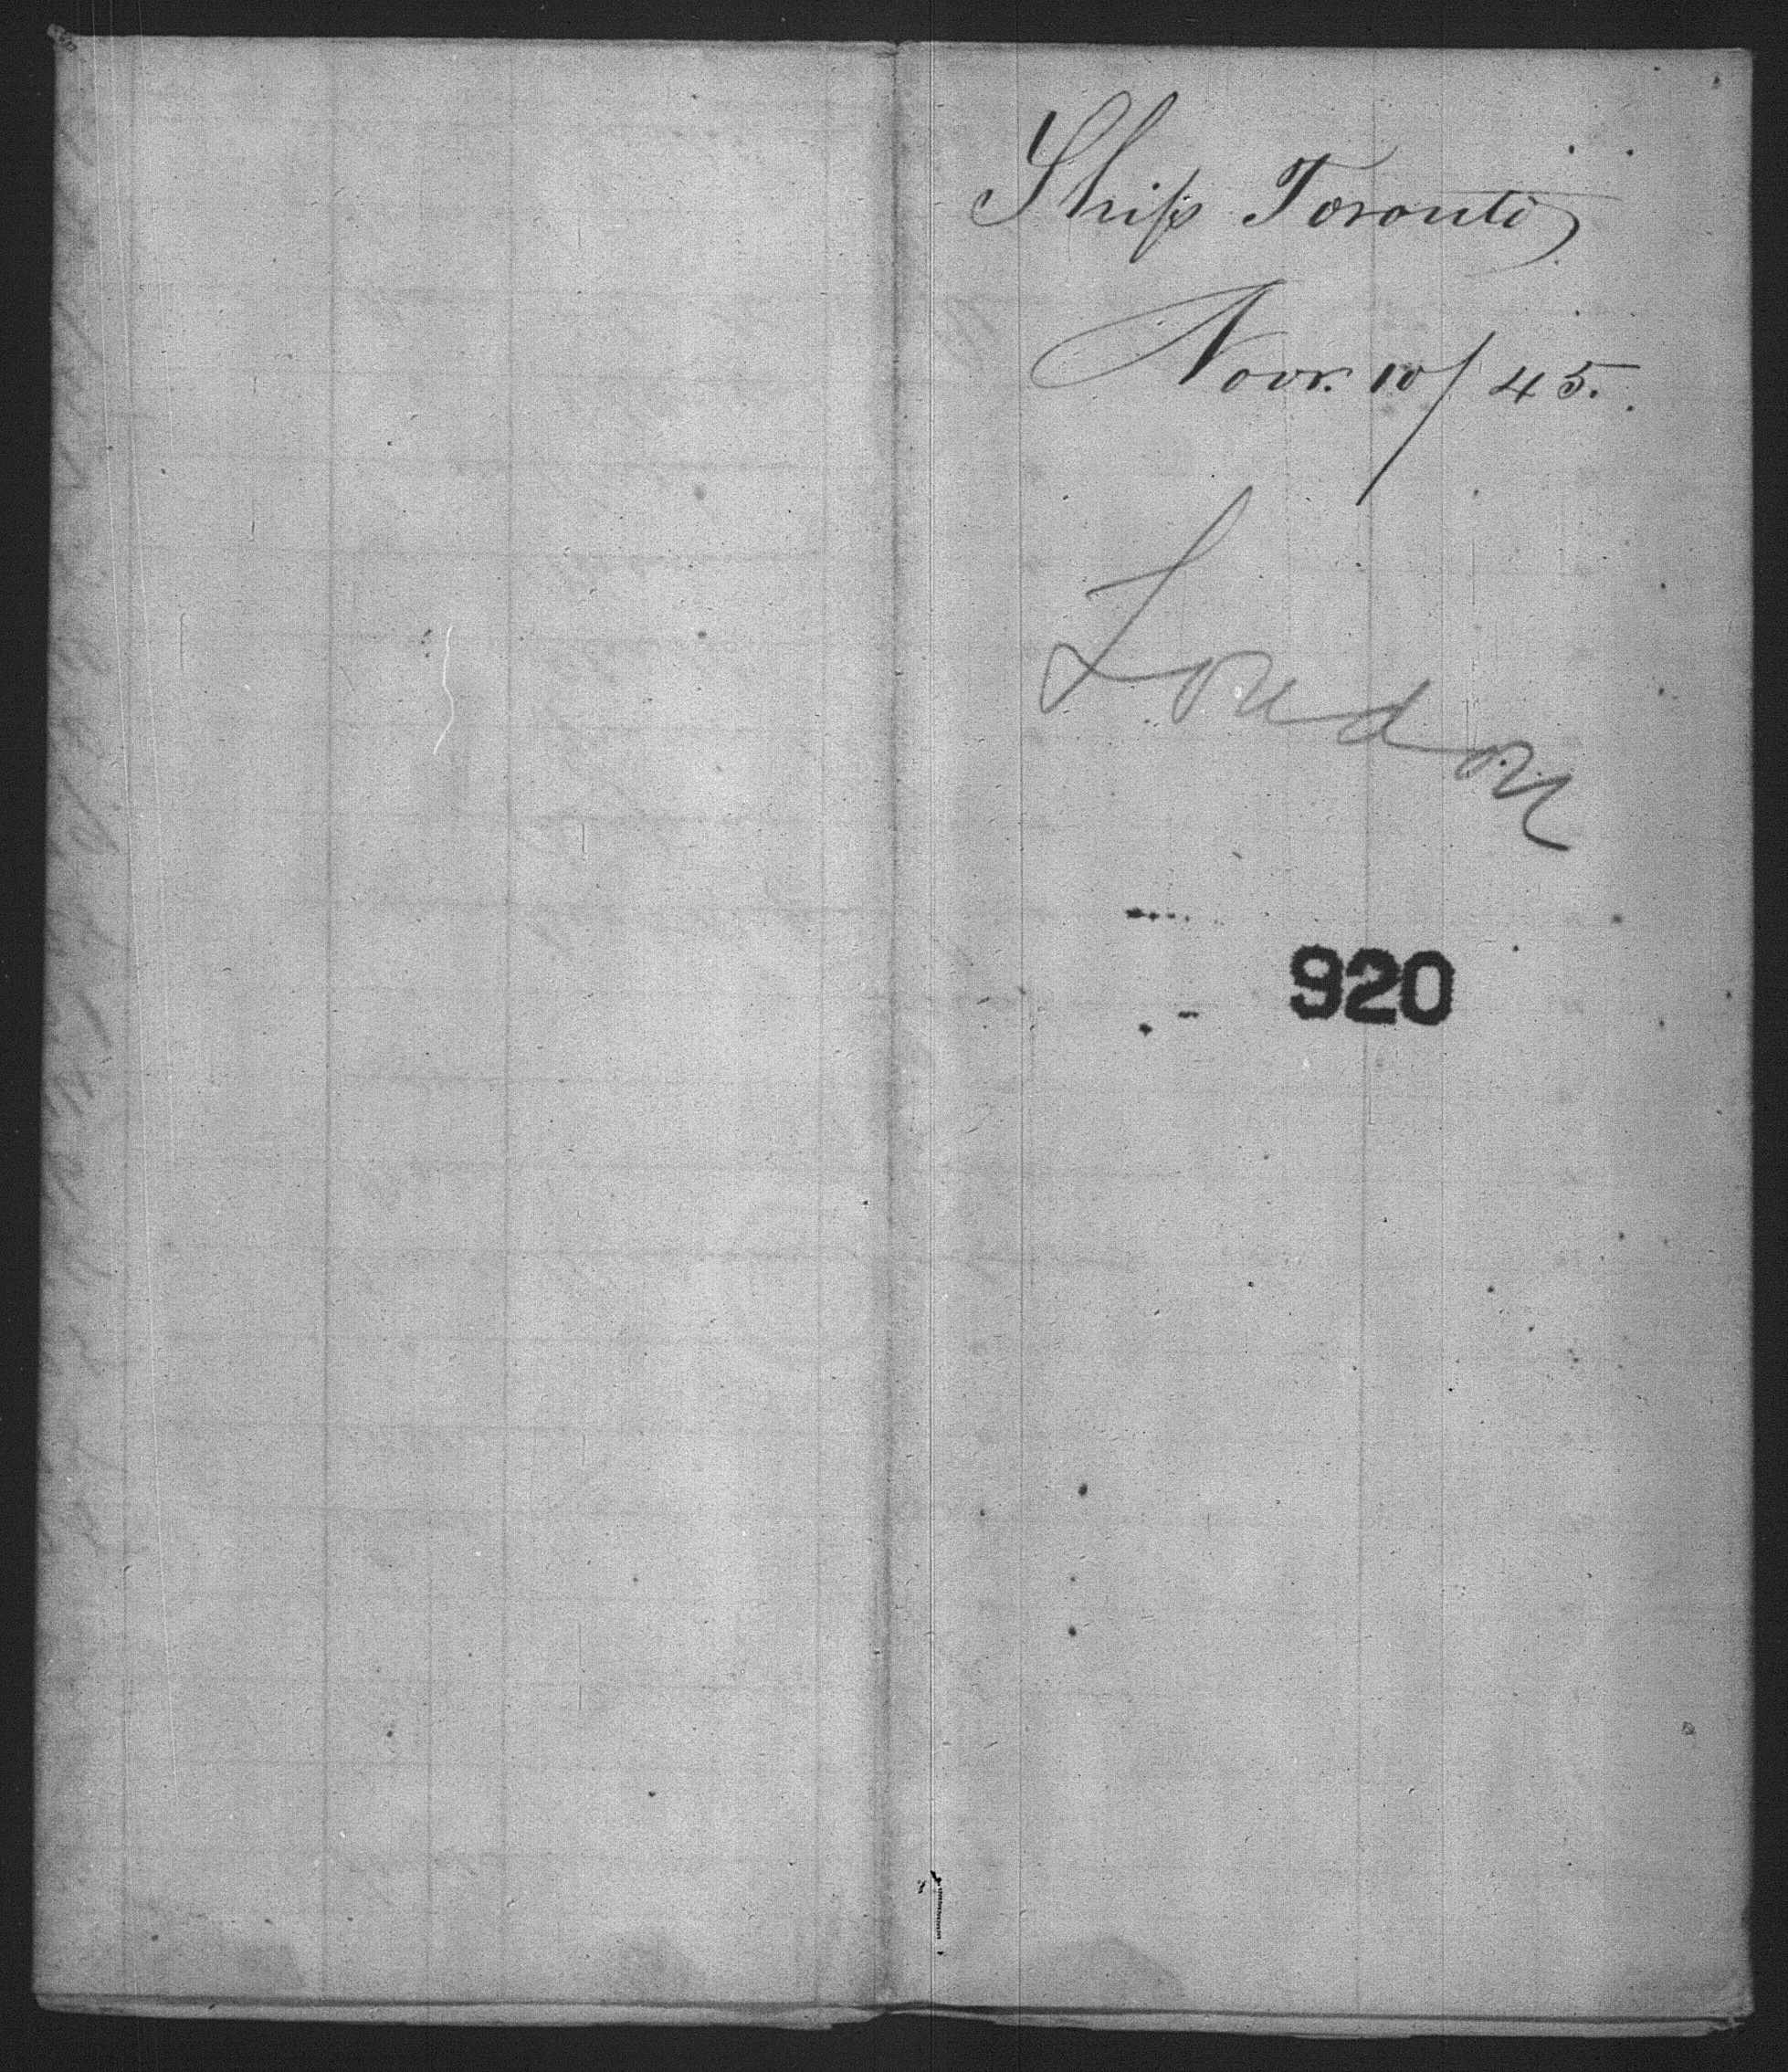 Ship Toronto
Novr. 10/45.
London
920